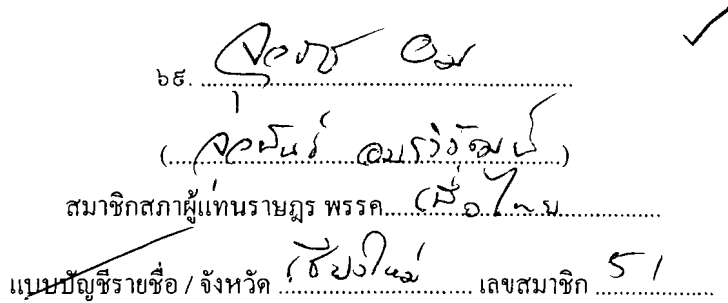 ๖๙.
(จุลพันธ์ อมรวิวัฒน์)
สมาชิกสภาผู้แทนราษฎร พรรค เพื่อไทย
แบบบัญชีรายชื่อ / จังหวัด เชียงใหม่ เลขสมาชิก 51